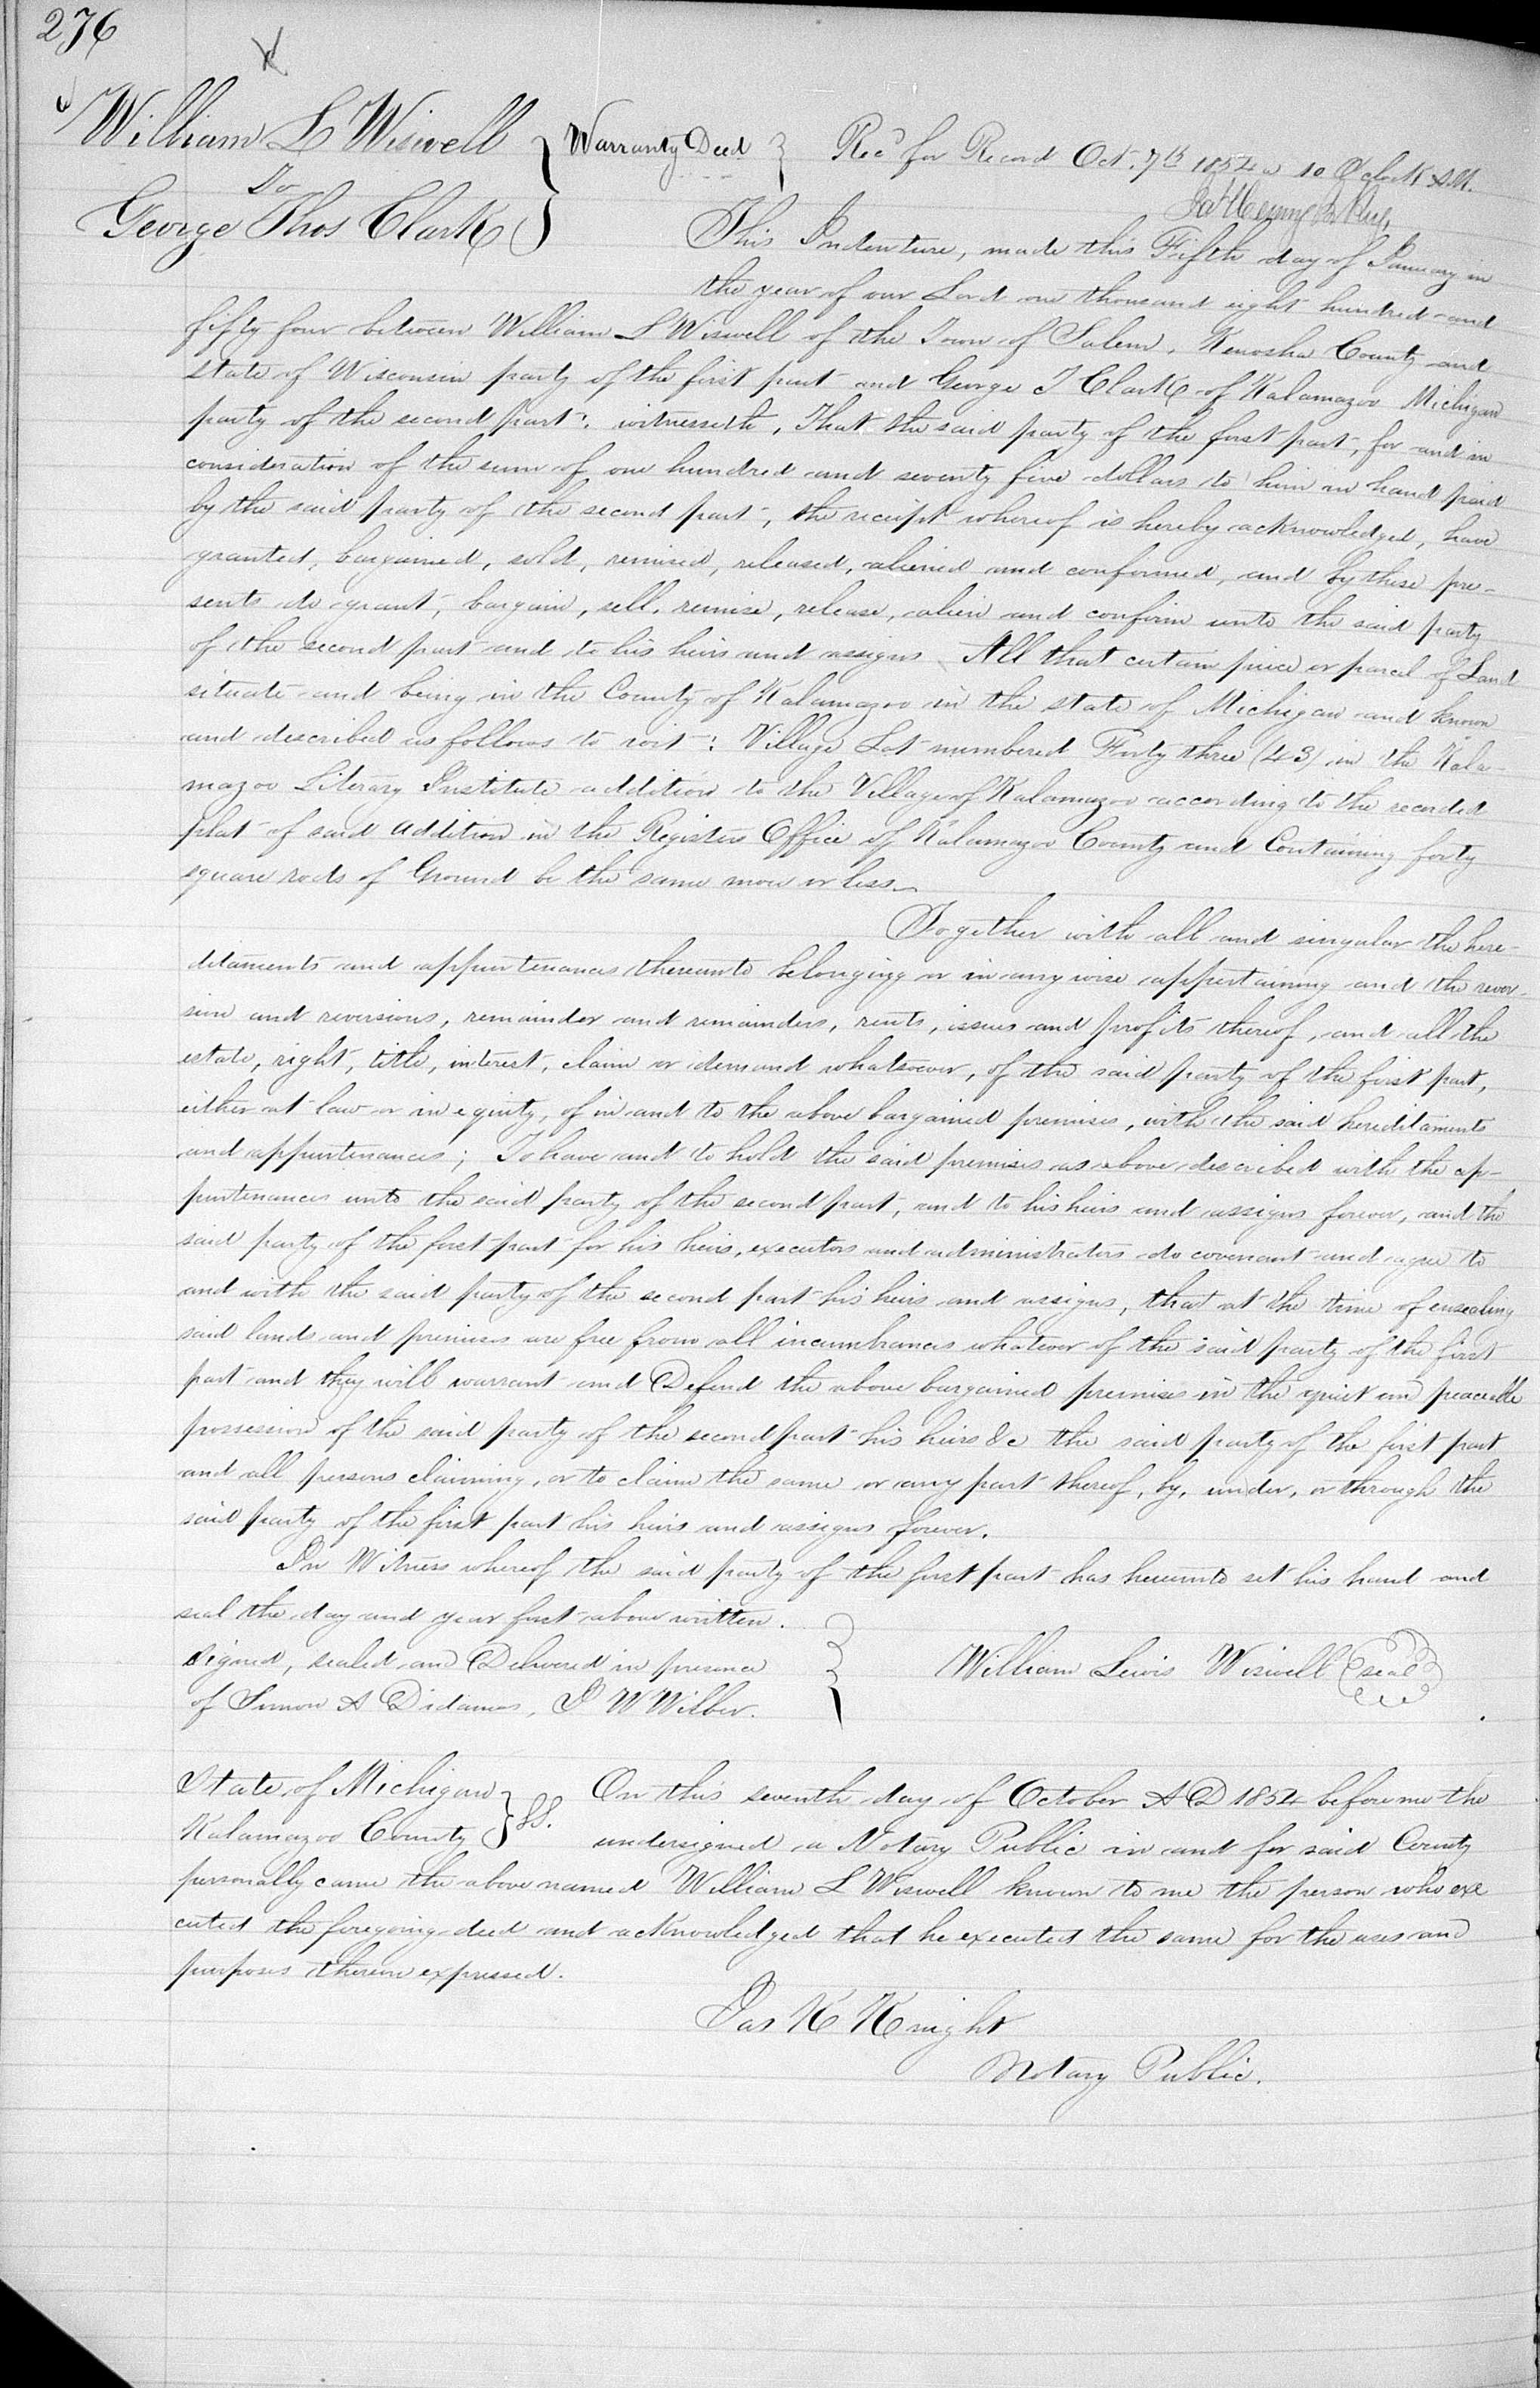 276
William L Wiswell } Warranty Deed } Rec'd for Record Oct. 7th 1854 at 10 O'clock A.M.
To
George Thos Clark
This Indenture, made this Fifth day of January in
the year of our Lord one thousand eight hundred and
fifty four between William L Wiswell of the Town of Salem, Kenosha County and
state of Wisconsin party of the first part and George T Clark of Kalamazoo Michigan
party of the second part: witnesseth, That the said party of the first part, for and in
consideration of the sum of one hundred and seventy five dollars to him in hand paid
by the said party of the second part, the receipt whereof is hereby acknowledged, have
granted, bargained, sold, remised, released, aliened and conformed, and by these pre-
sents do grant, bargain, sell, remise, release, alien and confirm unto the said party
of the second part and to his heirs and assigns All that certain piece or parcel of Land
situate and being in the County of Kalamazoo in the state of Michigan and known
and described as follows to wit: Village Lot numbered Forty three (43) in the Kala-
mazoo Literary Institute addition to the Village of Kalamazoo according to the recorded
plat of said addition in the Registers Office of Kalamazoo County and Containing forty
square rods of Ground be the same more or less
Together with all and singular the here-
ditaments and appurtenances thereunto belonging or in any wise appertaining and the rever-
sion and reversions, remainder and remainders, rents, issues and profits thereof, and all the
estate, right, title, interest, claim or demand whatsoever, of the said party of the first part,
either at law or in equity, of in and to the above bargained premises, with the said hereditaments
and appurtenances; To have and to hold the said premises as above described with the ap-
purtenances unto the said party of the second part, and to his heirs and assigns forever, and the
said party of the first part for his heirs, executors and administrators do covenant and agree to
and with the said party of the second part his heirs and assigns, that at the time of ensealing
said lands and premises are free from all incumbrances whatever of the said party of the first
part and they will warrant and Defend the above bargained premises in the quiet and peaceable
possession of the said party of the second part his heirs &c the said party of the first part
and all persons claiming, or to claim the same or any part thereof, by, under, or through the
said party of the first part his heirs and assigns forever.
In Witness whereof the said party of the first part has hereunto set his hand and
seal the day and year first above written.
signed, sealed and Delivered in presence } William Lewis Wiswell (seal)
of Simon A Didamas, P W Wilber.
State of Michigan } ss. On this seventh day of October A D 1854 before me the
Kalamazoo County undersigned a Notary Public in and for said County
personally came the above named William L Wiswell known to me the person who exe
cuted the foregoing deed and acknowledged that he executed the same for the uses and
purposes therein expressed.
Jas K Knight
Notary Public.